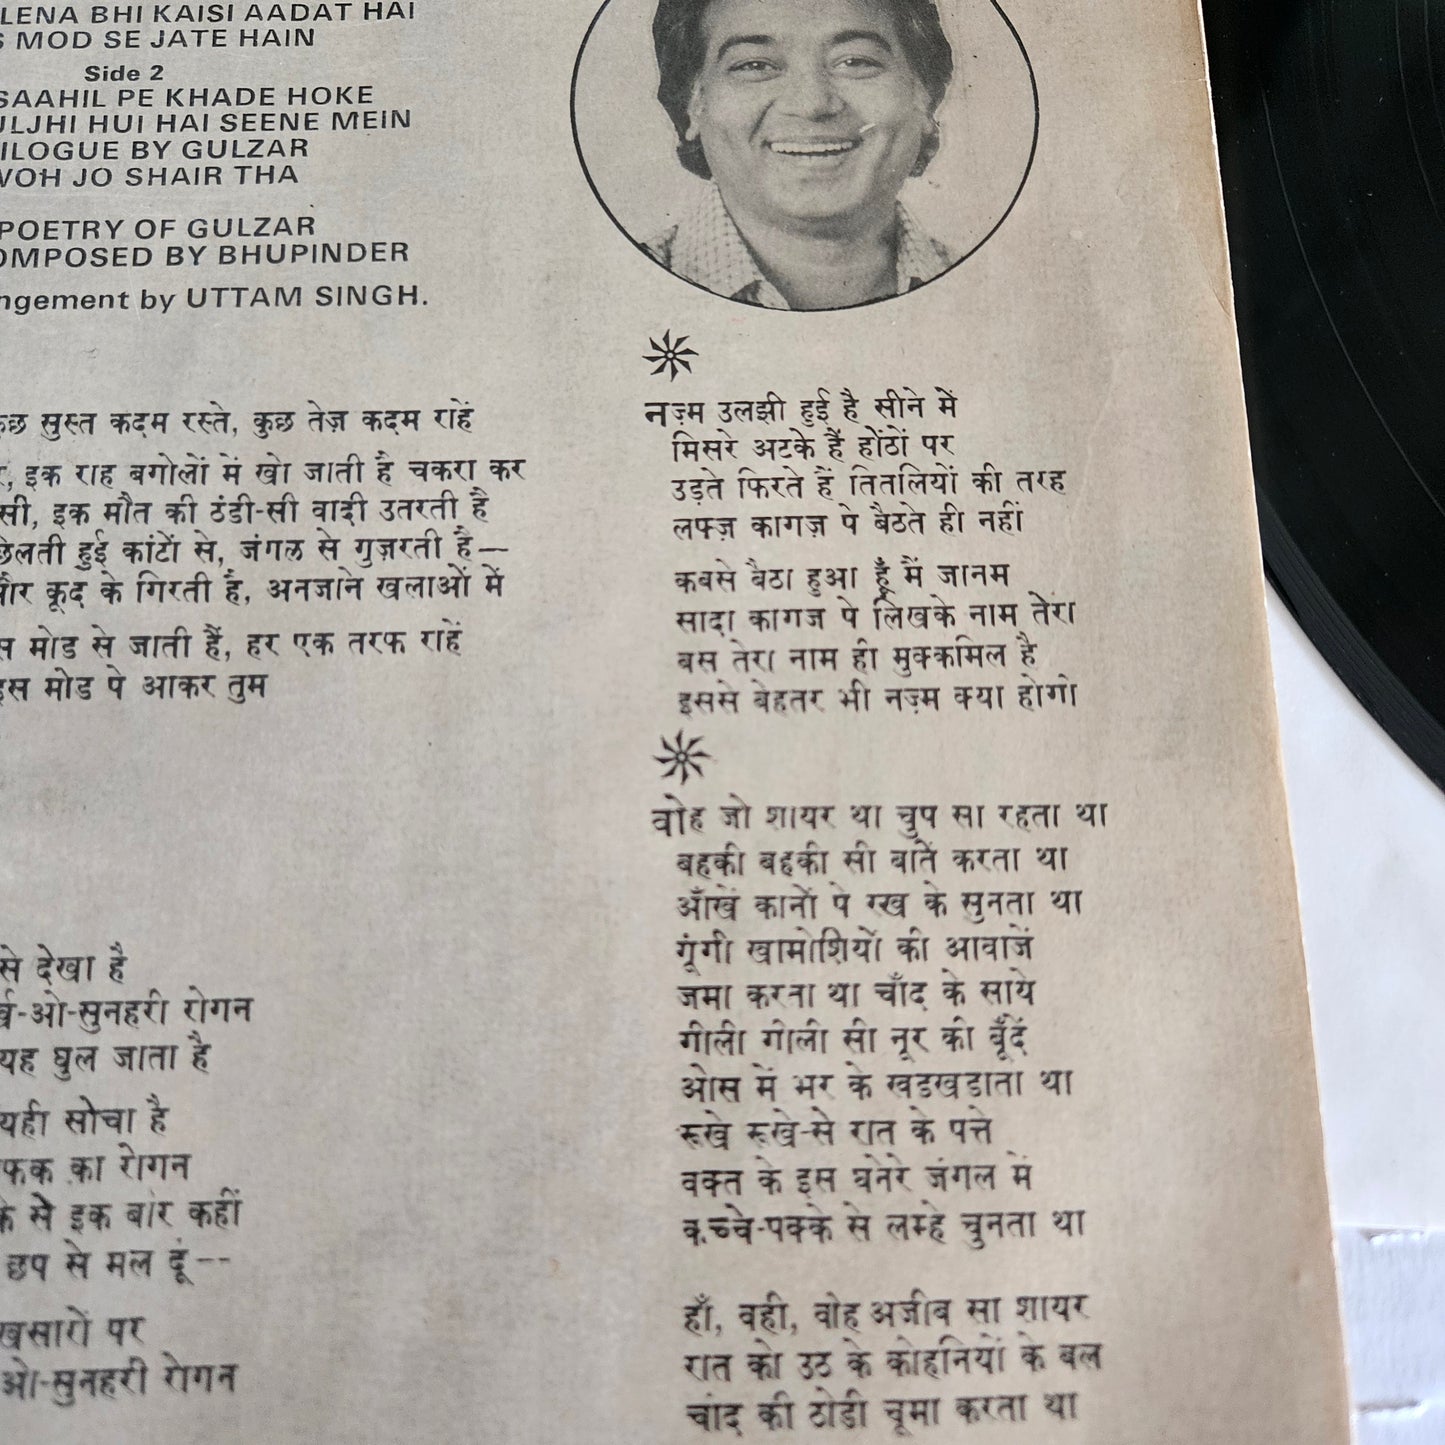 LENA BHI KAISI AADAT HAI
MOD SE JATE HAIN
Side 2
SAAHIL PE KHADE HOKE
HUI HAI SEENE MEIN
BY GULZAR
WOH JO SHAIR THA
POETRY OF GULZAR
BY BHUPINDER
by UTTAM SINGH.
सुस्त कदम रस्ते, कुछ तेज़ कदम राहें
इक राह बगोलों में खो जाती है चकरा कर
सी, इक मौत की ठंडी-सी वादी उतरती है
हुई कांटों से, जंगल से गुज़रती है—
और कूद के गिरती है, अनजाने खलाओं में
मोड से जाती हैं, हर एक तरफ राहें
इस मोड पे आकर तुम
से देखा है
-ओ-सुनहरी रोगन
यह घुल जाता है
यही सोचा है
का रोगन
से इक बार कहीं
छप से मल दूं--
पर
ओ-सुनहरी रोगन
नज़्म उलझी हुई है सीने में
मिसरे अटके हैं होंठों पर
उड़ते फिरते हैं तितलियों की तरह
लफ्ज़ कागज़ पे बैठते ही नहीं
कबसे बैठा हुआ हूँ मैं जानम
सादा कागज पे लिखके नाम तेरा
बस तेरा नाम ही मुक्कमिल है
इससे बेहतर भी नज़्म क्या होगी
वोह जो शायर था चुप सा रहता था
बहकी बहकी सी बातें करता था
आँखें कानों पे रख के सुनता था
गूंगी खामोशियों की आवाजें
जमा करता था चाँद के साये
गीली गीली सी नूर की बूँदें
ओस में भर के खडखडाता था
रूखे रूखे-से रात के पत्ते
वक्त के इस घनेरे जंगल में
कच्चे-पक्के से लम्हे चुनता था
हाँ, वही, वोह अजीब सा शायर
रात को उठ के कोहनियों के बल
चांद की ठोडी चूमा करता था